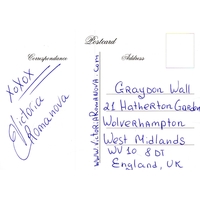 Postcard
Correspondance
Address
XoXoX
Victoria
Romanova
www.VictoriaRomanova.com
Graydon Wall
21 Hatherton Gardens
Wolverhampton
West Midlands
WV10 8DT
England, UK